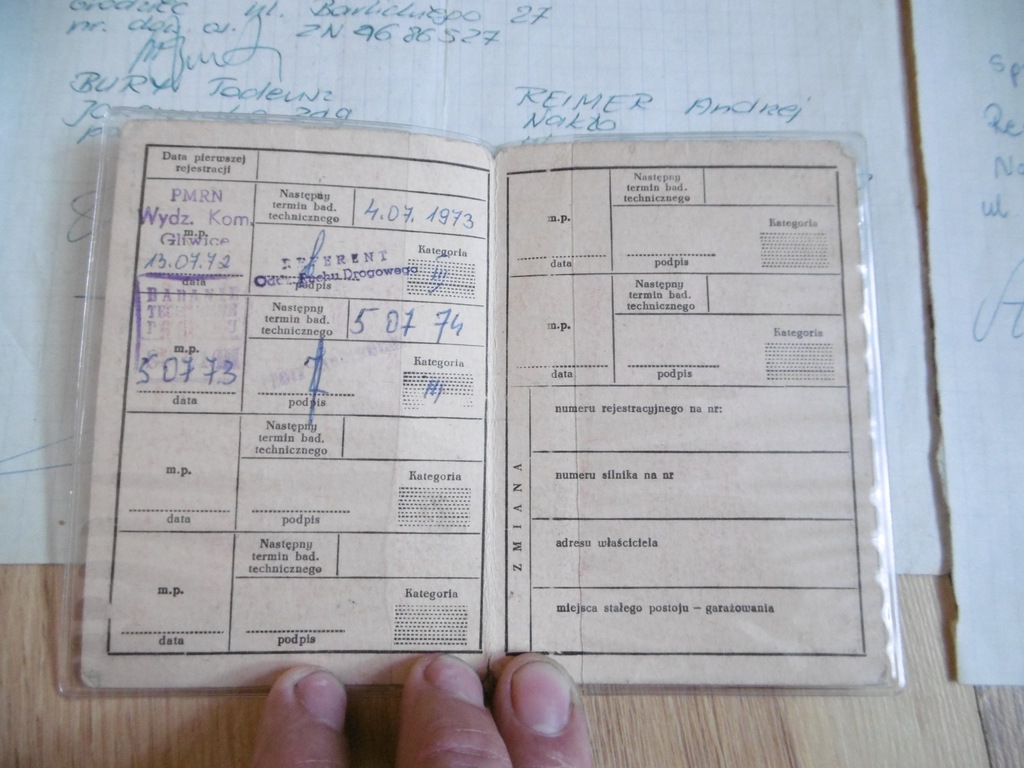 Grodziec ul. Barlickiego 27
nr. dow. os. ZN 9686527
BURY Tadeusz
REIMER Andrzej
Nakło
Data pierwszej
rejestracji
PMRN
Wydz. Kom.
m.p.
Gliwice
13.07.72
data
Następny
termin bad.
technicznego
4.07.1973
REFERENT
Ruchu Drogowego
podpis
Kategoria
m.p.
5 07 73
data
Następny
termin bad.
technicznego
5 07 74
podpis
Kategoria
m.p.
data
Następny
termin bad.
technicznego
podpis
Kategoria
m.p.
data
Następny
termin bad.
technicznego
podpis
Kategoria
m.p.
data
Następny
termin bad.
technicznego
podpis
Kategoria
m.p.
data
Następny
termin bad.
technicznego
podpis
Kategoria
ZMIANA
numeru rejestracyjnego na nr:
numeru silnika na nr
adresu właściciela
miejsca stałego postoju – garażowania
ul